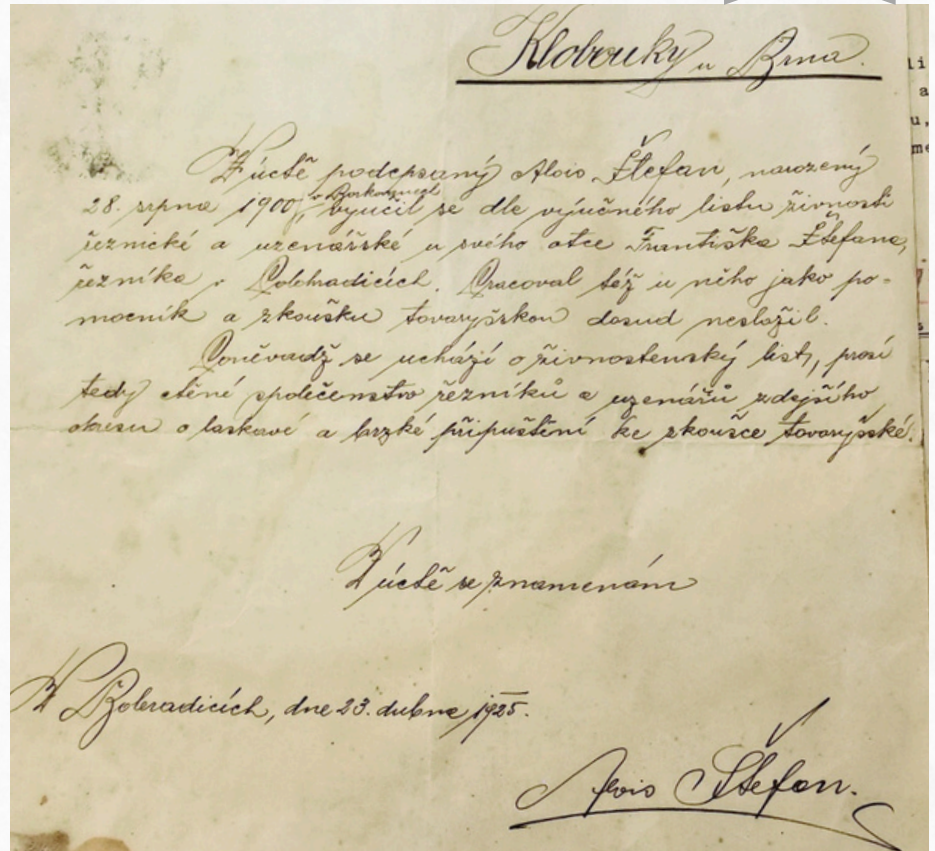 Klobouky u Brna.
V úctě podepsaný Alois Štefan, narozený
28. srpna 1900, v vyučil se dle výučného listu živnosti
řeznické a uzenářské u svého otce Františka Štefana,
řezníka v Bohradicích. Pracoval též u něho jako po-
mocník a zkoušku tovaryšskou dosud nesložil.
Poněvadž se uchází o živnostenský list, prosí
tedy ctěné společenstvo řezníků a uzenářů zdejšího
okresu o laskavé a brzké připuštění ke zkoušce tovaryšské.
V úctě se znamenám
V Bobradicích, dne 23. dubna 1925.
Alois Štefan.